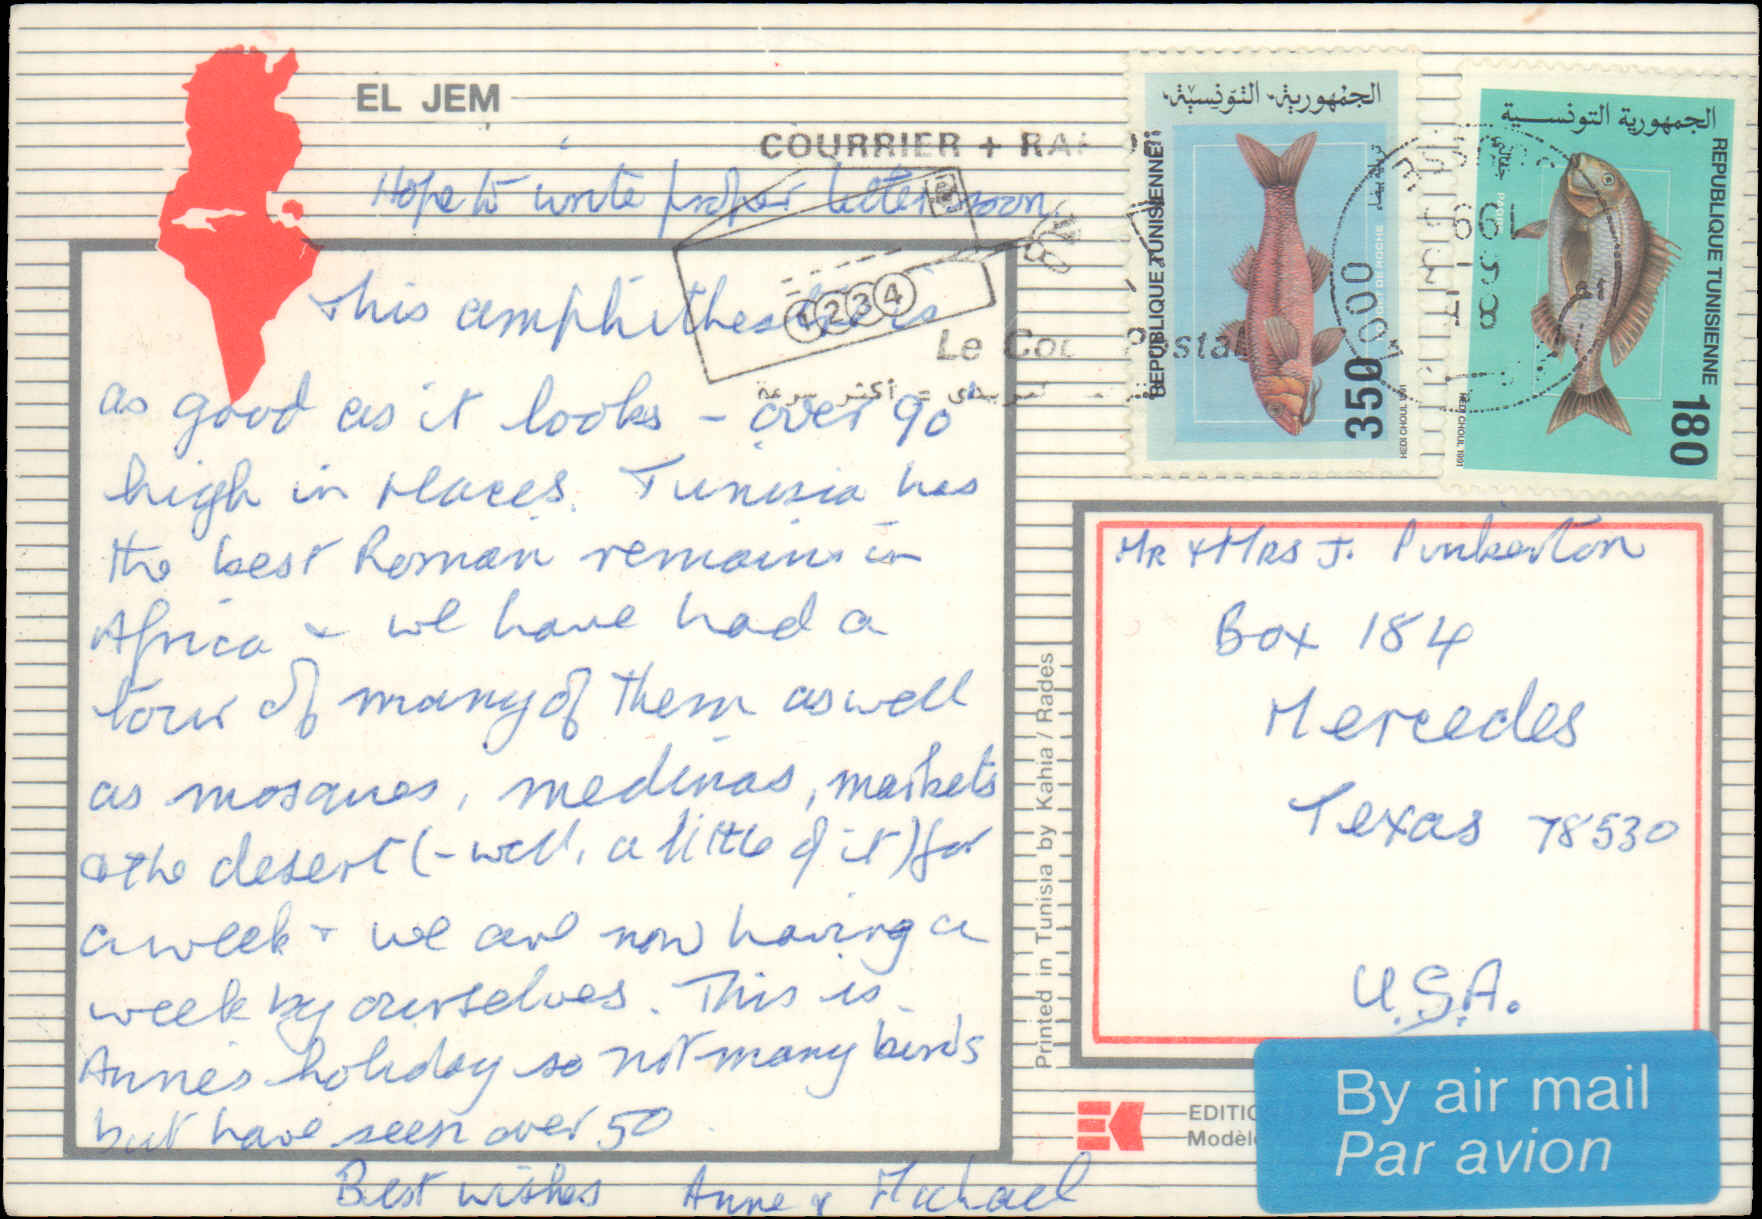 EL JEM
COURRIER + RA
Hope to write proper letter soon
This amphitheatre is
as good as it looks – over 90'
high in places. Tunisia has
the best Roman remains in
Africa & we have had a
tour of many of them as well
as mosques, medinas, markets
& the desert (– well, a little of it) for
a week & we are now having a
week by ourselves. This is
Anne's holiday so not many birds
but have seen over 50
Best wishes Anne & Michael
1 2 3 4
Le Co Postal
أكثر سرعة
الجمهورية التونسية
REPUBLIQUE TUNISIENNE
350
HEDI CHOUL 1991
الجمهورية التونسية
REPUBLIQUE TUNISIENNE
180
HEDI CHOUL 1991
Mr & Mrs J. Pinkerton
Box 184
Mercedes
Texas 78530
U.S.A.
Printed in Tunisia by Kahia / Rades
EK
EDITIO
Modèl
By air mail
Par avion